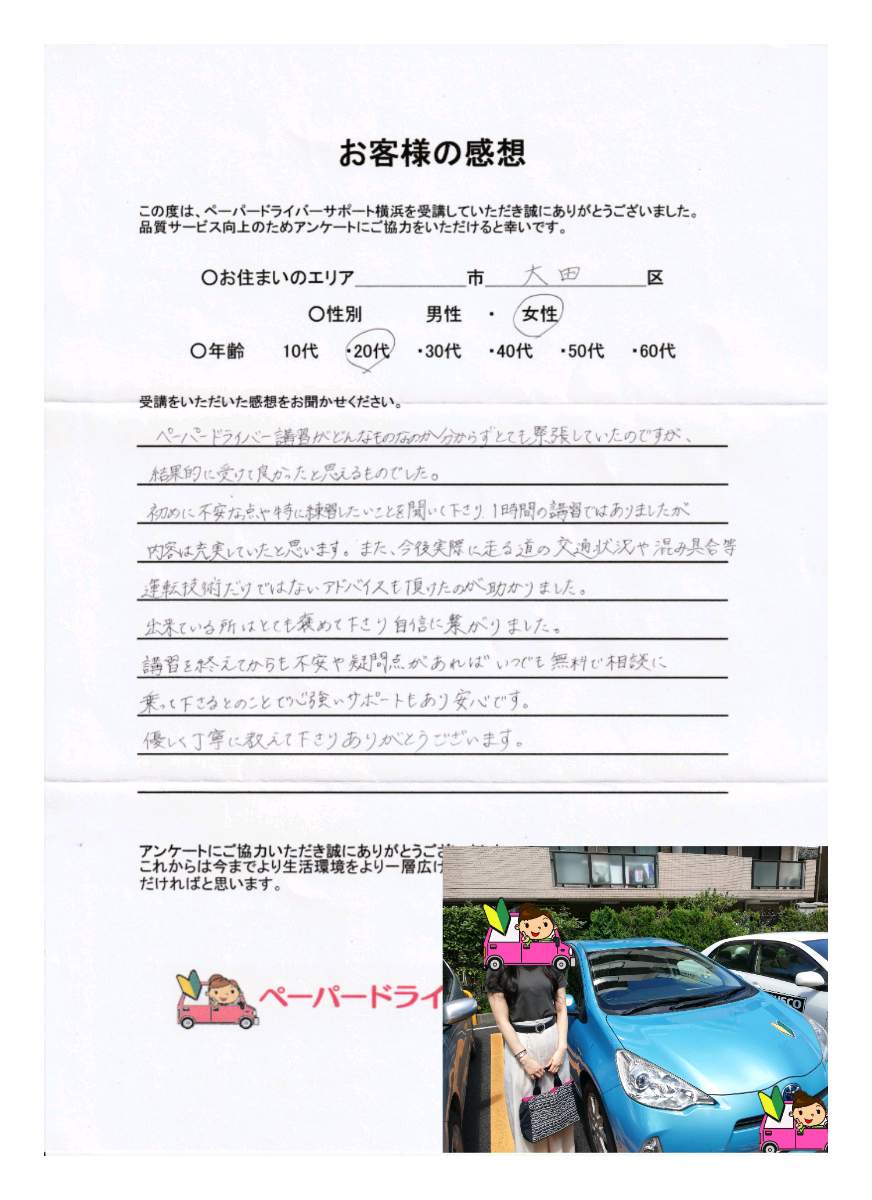 お客様の感想
この度は、ペーパードライバーサポート横浜を受講していただき誠にありがとうございました。
品質サービス向上のためアンケートにご協力をいただけると幸いです。
〇お住まいのエリア 市 大田 区
〇性別 男性 ・ 女性
〇年齢 10代 ・20代 ・30代 ・40代 ・50代 ・60代
受講をいただいた感想をお聞かせください。
ペーパードライバー講習がどんなものなのか分からずとても緊張していたのですが、
結果的に受けて良かったと思えるものでした。
初めに不安な点や特に練習したいことを聞いて下さり、1時間の講習ではありましたが
内容は充実していたと思います。また、今後実際に走る道の交通状況や混み具合等
運転技術だけではないアドバイスも頂けたのが助かりました。
出来ている所はとても褒めて下さり自信に繋がりました。
講習を終えてからも不安や疑問点があればいつでも無料で相談に
乗って下さるとのことで心強いサポートもあり安心です。
優しく丁寧に教えて下さりありがとうございます。
アンケートにご協力いただき誠にありがとうござ
これからは今までより生活環境をより一層広げ
だければと思います。
ペーパードライ